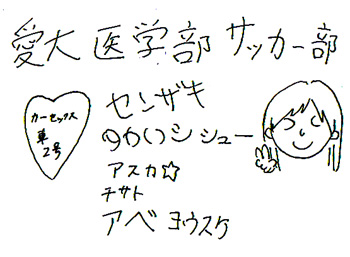 愛大 医学部 サッカー部
カーセックス
車
2号
センザキ
のかいシシュー
アスカ☆
チサト
アベ ヨウスケ